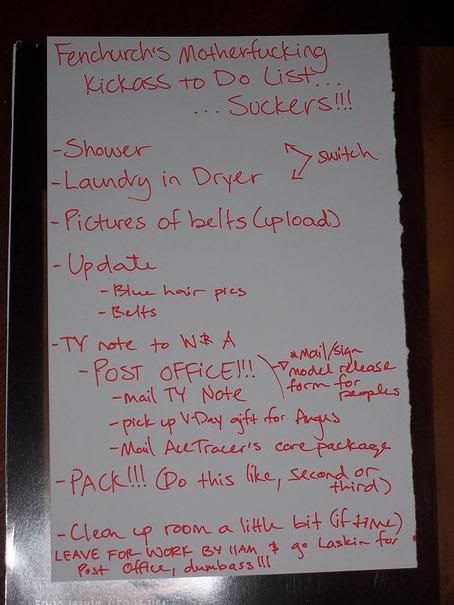 Fenchurch's Motherfucking
Kickass to Do List...
...Suckers!!!
- Shower
switch
- Laundry in Dryer
- Pictures of belts (upload)
- Update
- Blue hair pics
- Belts
- TY note to W & A
- POST OFFICE!!!
* mail/sign
model release
form for
peoples
- mail TY Note
- pick up V-Day gift for Angus
- Mail AceTracer's care package
- PACK!!! (Do this like, second or
third)
- Clean up room a little bit (if time)
LEAVE FOR WORK BY 11AM & go Laskin for
Post Office, dumbass!!!